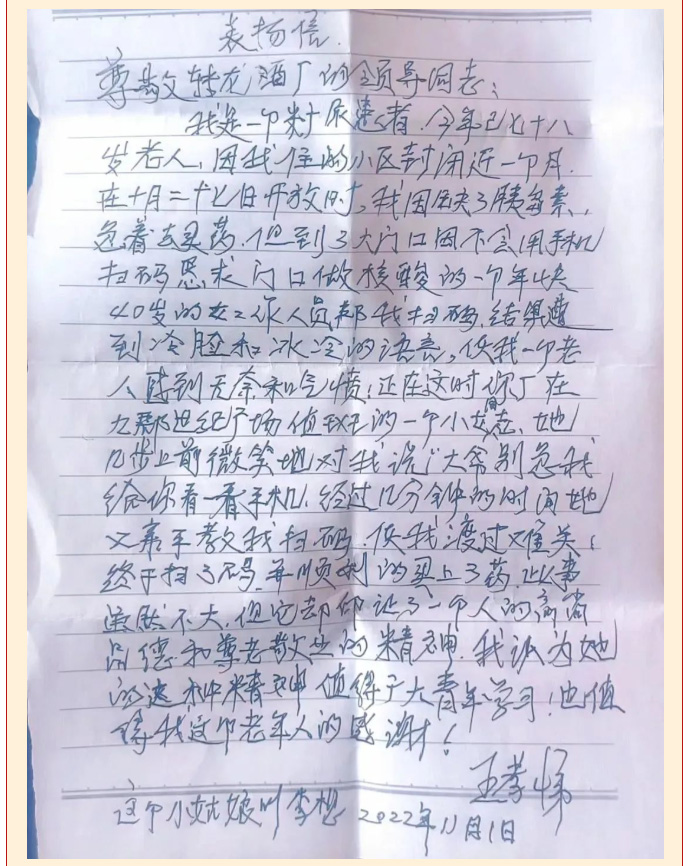 表扬信.
尊敬文龙酒厂的领导同志:
我是一个糖尿患者.今年已七十八
岁老人,因我住的小区封闭近一个月.
在十月二十七日开放时,我因缺了胰岛素,
急着去买药.但到了大门口因不会用手机
扫码恳求门口做核酸的一个年快
40岁的女工作人员帮我扫码,结果遭
到冷脸和冰冷的语言,使我一个老
人感到无奈和气愤!还在这时你厂在
九都世纪广场值班的一个小女同志,她
几步上前微笑地对我说"大爷别急我
给你看一看手机.经过几分钟的时间她
又亲手教我扫码.使我渡过难关!
终于扫了码,并顺利的买上了药.此事
虽然不大.但它却印证了一个人的高尚
品德和尊老敬业的精神.我认为她
的这种精神值得广大青年学习!也值
得我这个老年人的感谢!
王孝悌
这个小姑娘叫李想 2022年11月1日